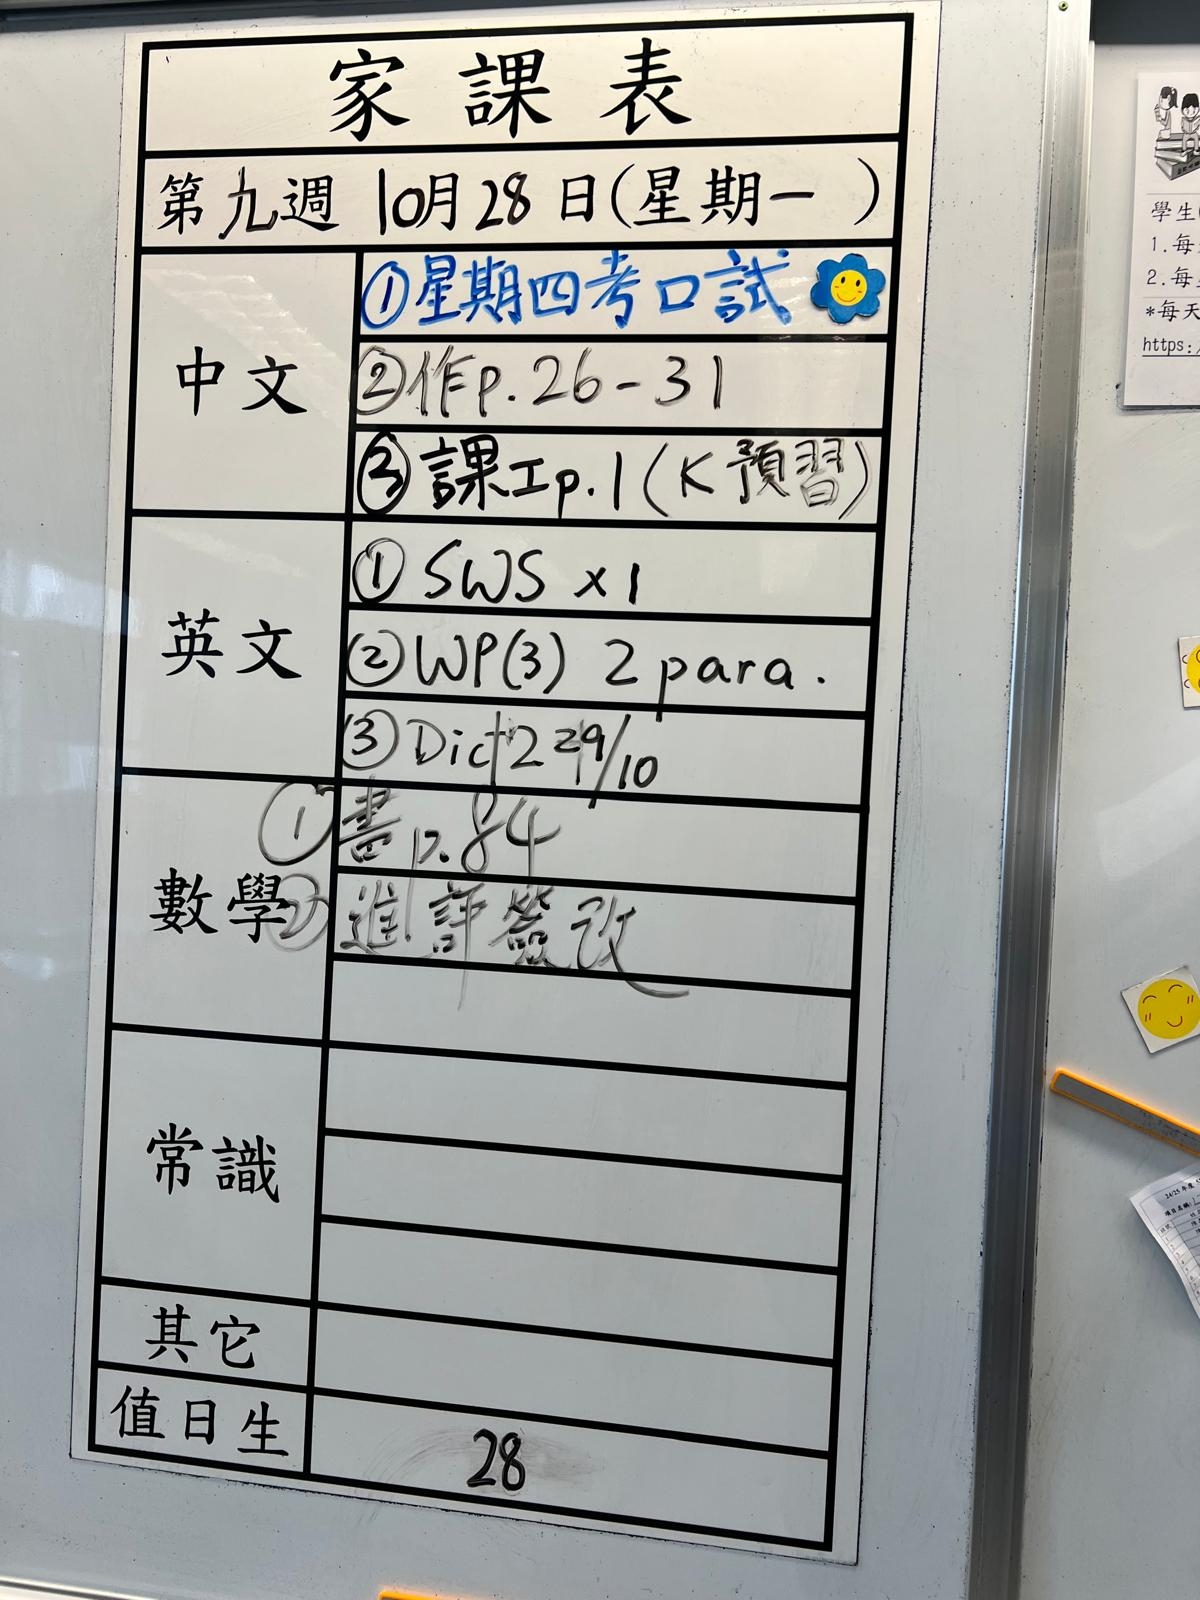 家課表
第九週 10月28日(星期一 )
中文
①星期四考口試
②作p.26-31
③課工p.1(K預習)
英文
①SWS x1
②WP(3) 2 para.
③Dict 2 29/10
數學
①書p.84
②進評簽改
常識
其它
值日生
28
學生
1.每
2.每
*每天
https:/
24/25 年度
項目名稱: